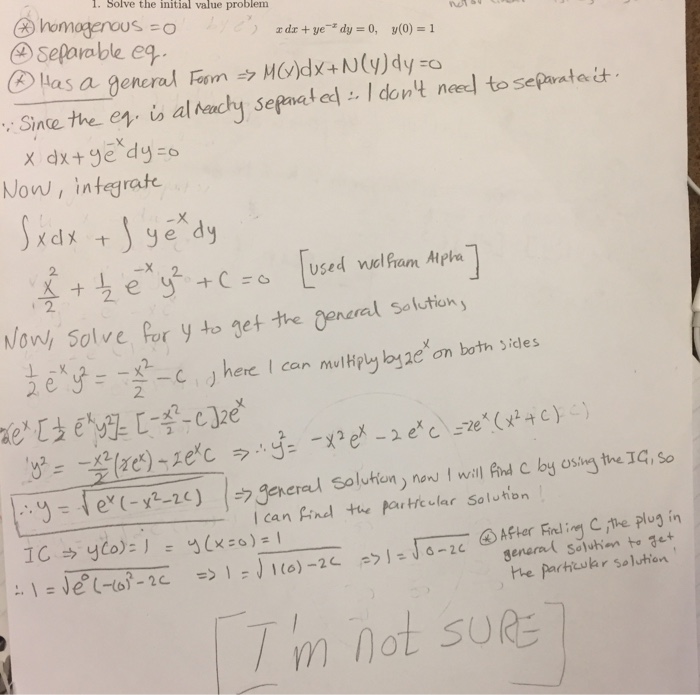 1. Solve the initial value problem
x dx + ye^{-x} dy = 0, y(0) = 1
⊛ homogenous = 0
⊛ Separable eq.
⊛ Has a general Form => M(x)dx + N(y)dy = 0
∵ Since the eq. is already separated ∴ I don't need to separate it.
x dx + ye^{-x} dy = 0
Now, integrate
∫xdx + ∫ye^{-x}dy
x²/2 + 1/2 e^{-x} y² + C = 0 [used wolfram Alpha]
Now, solve for y to get the general solution,
1/2 e^{-x} y² = -x²/2 - C, here I can multiply by 2e^x on both sides
2e^x [1/2 e^{-x} y²] = [-x²/2 - C] 2e^x
y² = -x²/2 (2e^x) - 2e^x C => ∴ y² = -x² e^x - 2e^x C = 2e^x (x² + C)
∴ y = √e^x(-x²-2C) => general solution, now I will find C by using the IC, so
I can find the particular solution!
IC => y(0) = 1 = y(x=0) = 1
∴ 1 = √e^0(-(0)²-2C => 1 = √1(0)-2C => 1 = √0-2C
⊛ After Finding C, the plug in
general solution to get
the particular solution!
[I'm not SURE]